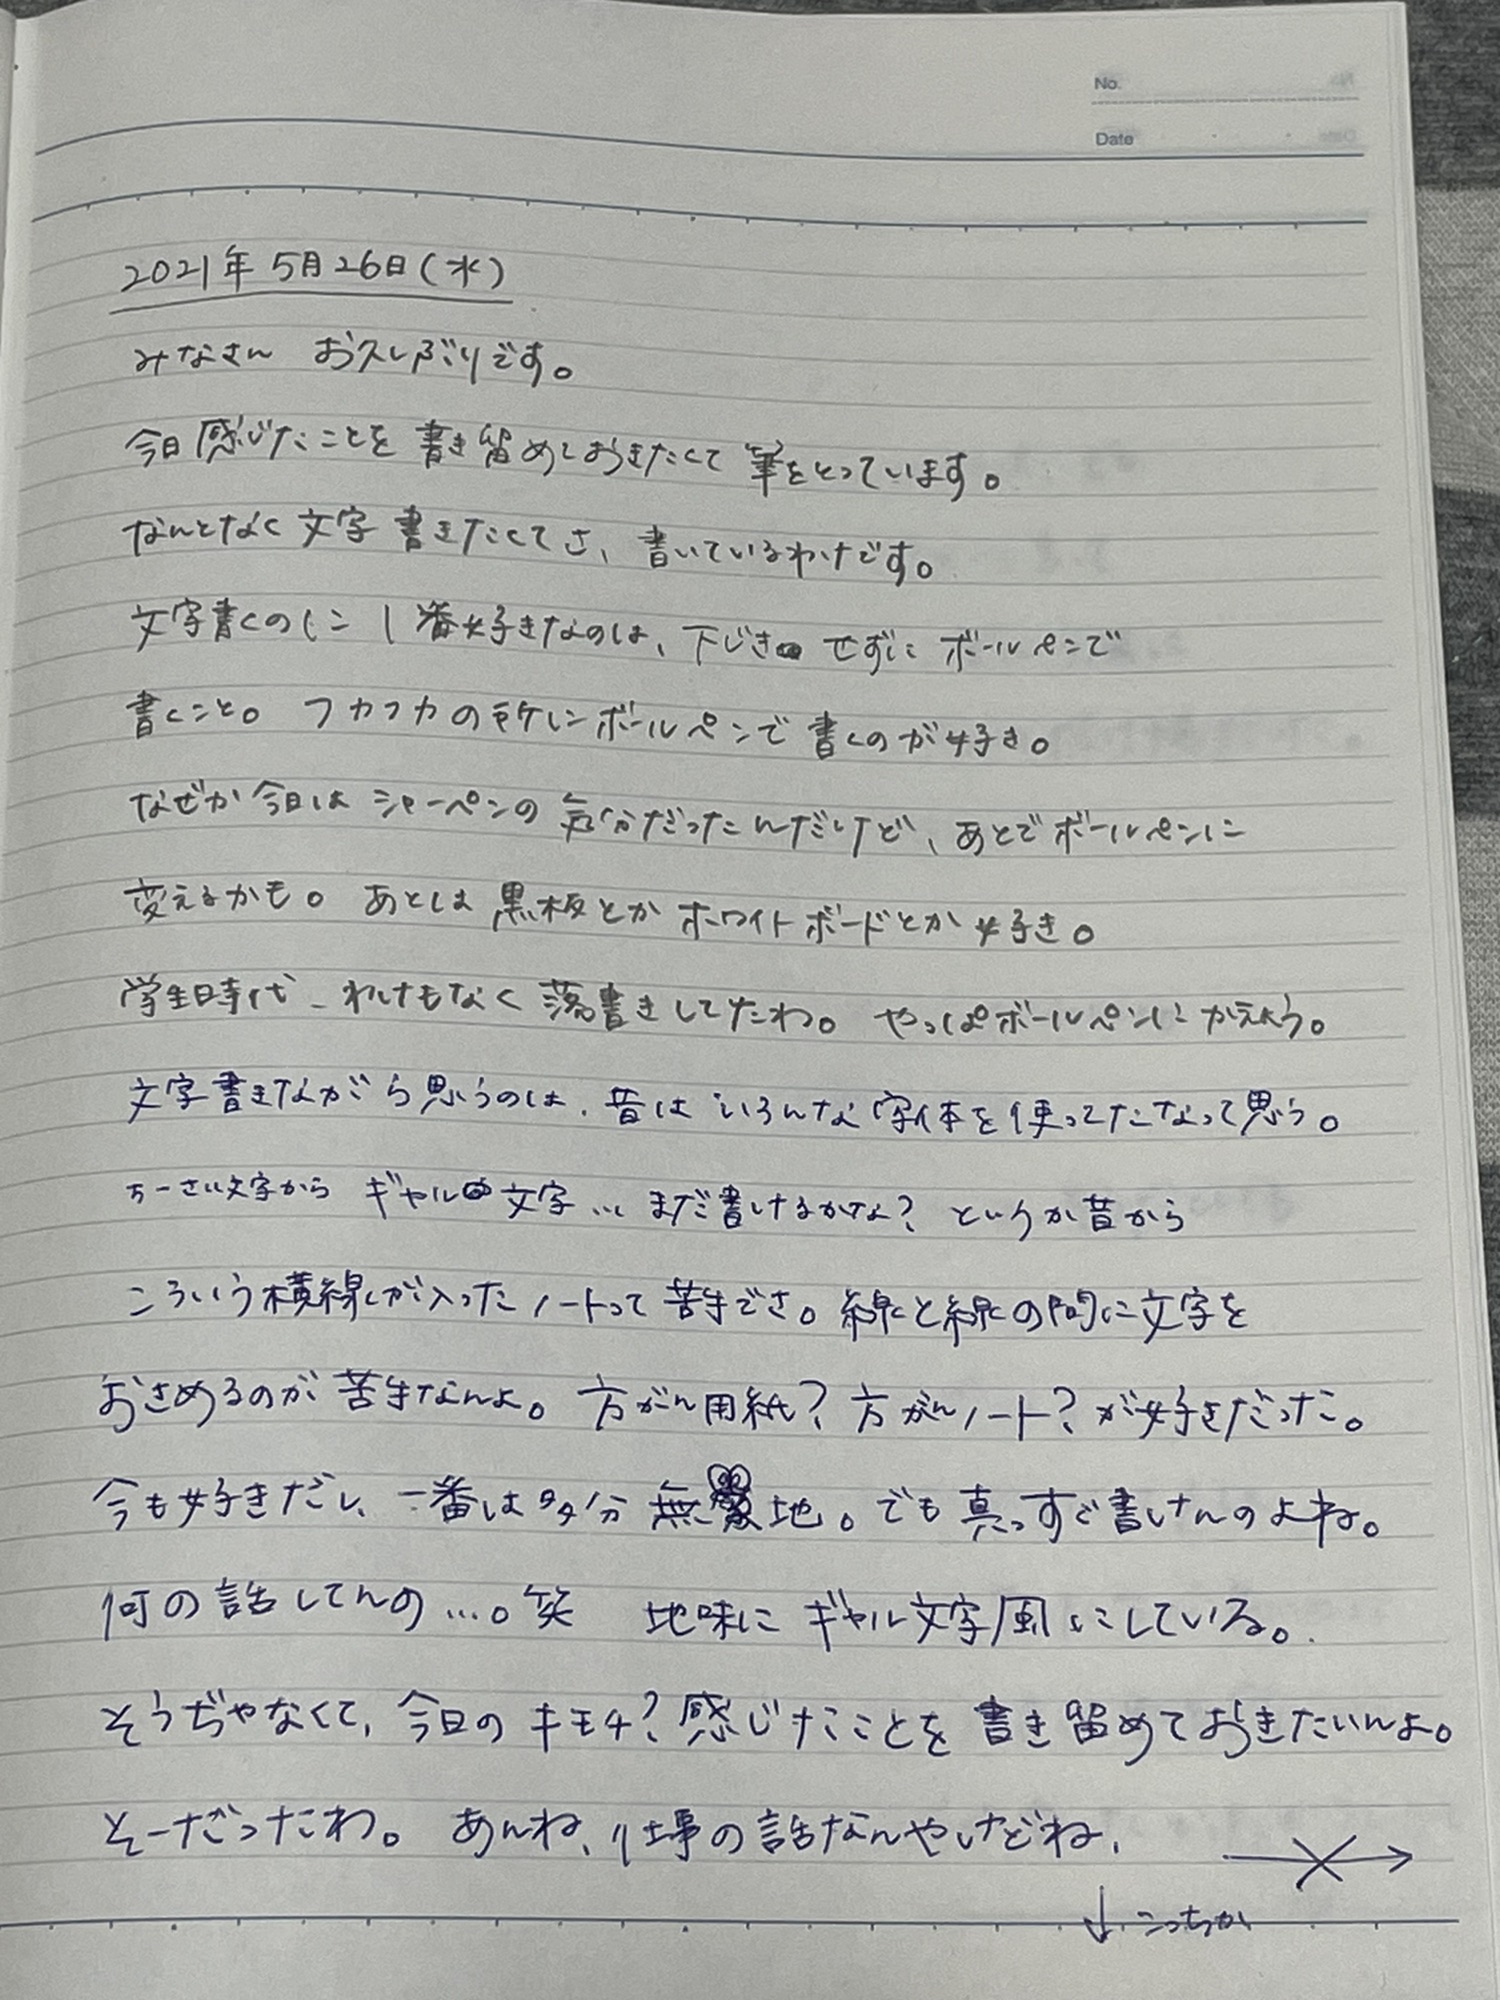 No.
Date
2021年5月26日(水)
みなさん お久しぶりです。
今日感じたことを書き留めておきたくて筆をとっています。
なんとなく文字書きたくてさ、書いているわけです。
文字書くのに1番好きなのは、下じきせずにボールペンで
書くこと。フカフカの所にボールペンで書くのが好き。
なぜか今日はシャーペンの気分だったんだけど、あとでボールペンに
変えるかも。あとは黒板とかホワイトボードとか好き。
学生時代、わけもなく落書きしてたわ。やっぱボールペンにかえよう。
文字書きながら思うのは、昔はいろんな字体を使ってたなって思う。
ちーさい文字からギャル文字…まだ書けるかな?というか昔から
こういう横線が入ったノートって苦手でさ。線と線の間に文字を
おさめるのが苦手なんよ。方がん用紙?方がんノート?が好きだった。
今も好きだし、一番は多分無地。でも真っすぐ書けんのよね。
何の話してんの…。笑 地味にギャル文字風にしている。
そうぢゃなくて、今日のキモチ?感じたことを書き留めておきたいんよ。
そーだったわ。あんね、仕事の話なんやけどね、
↓こっちか